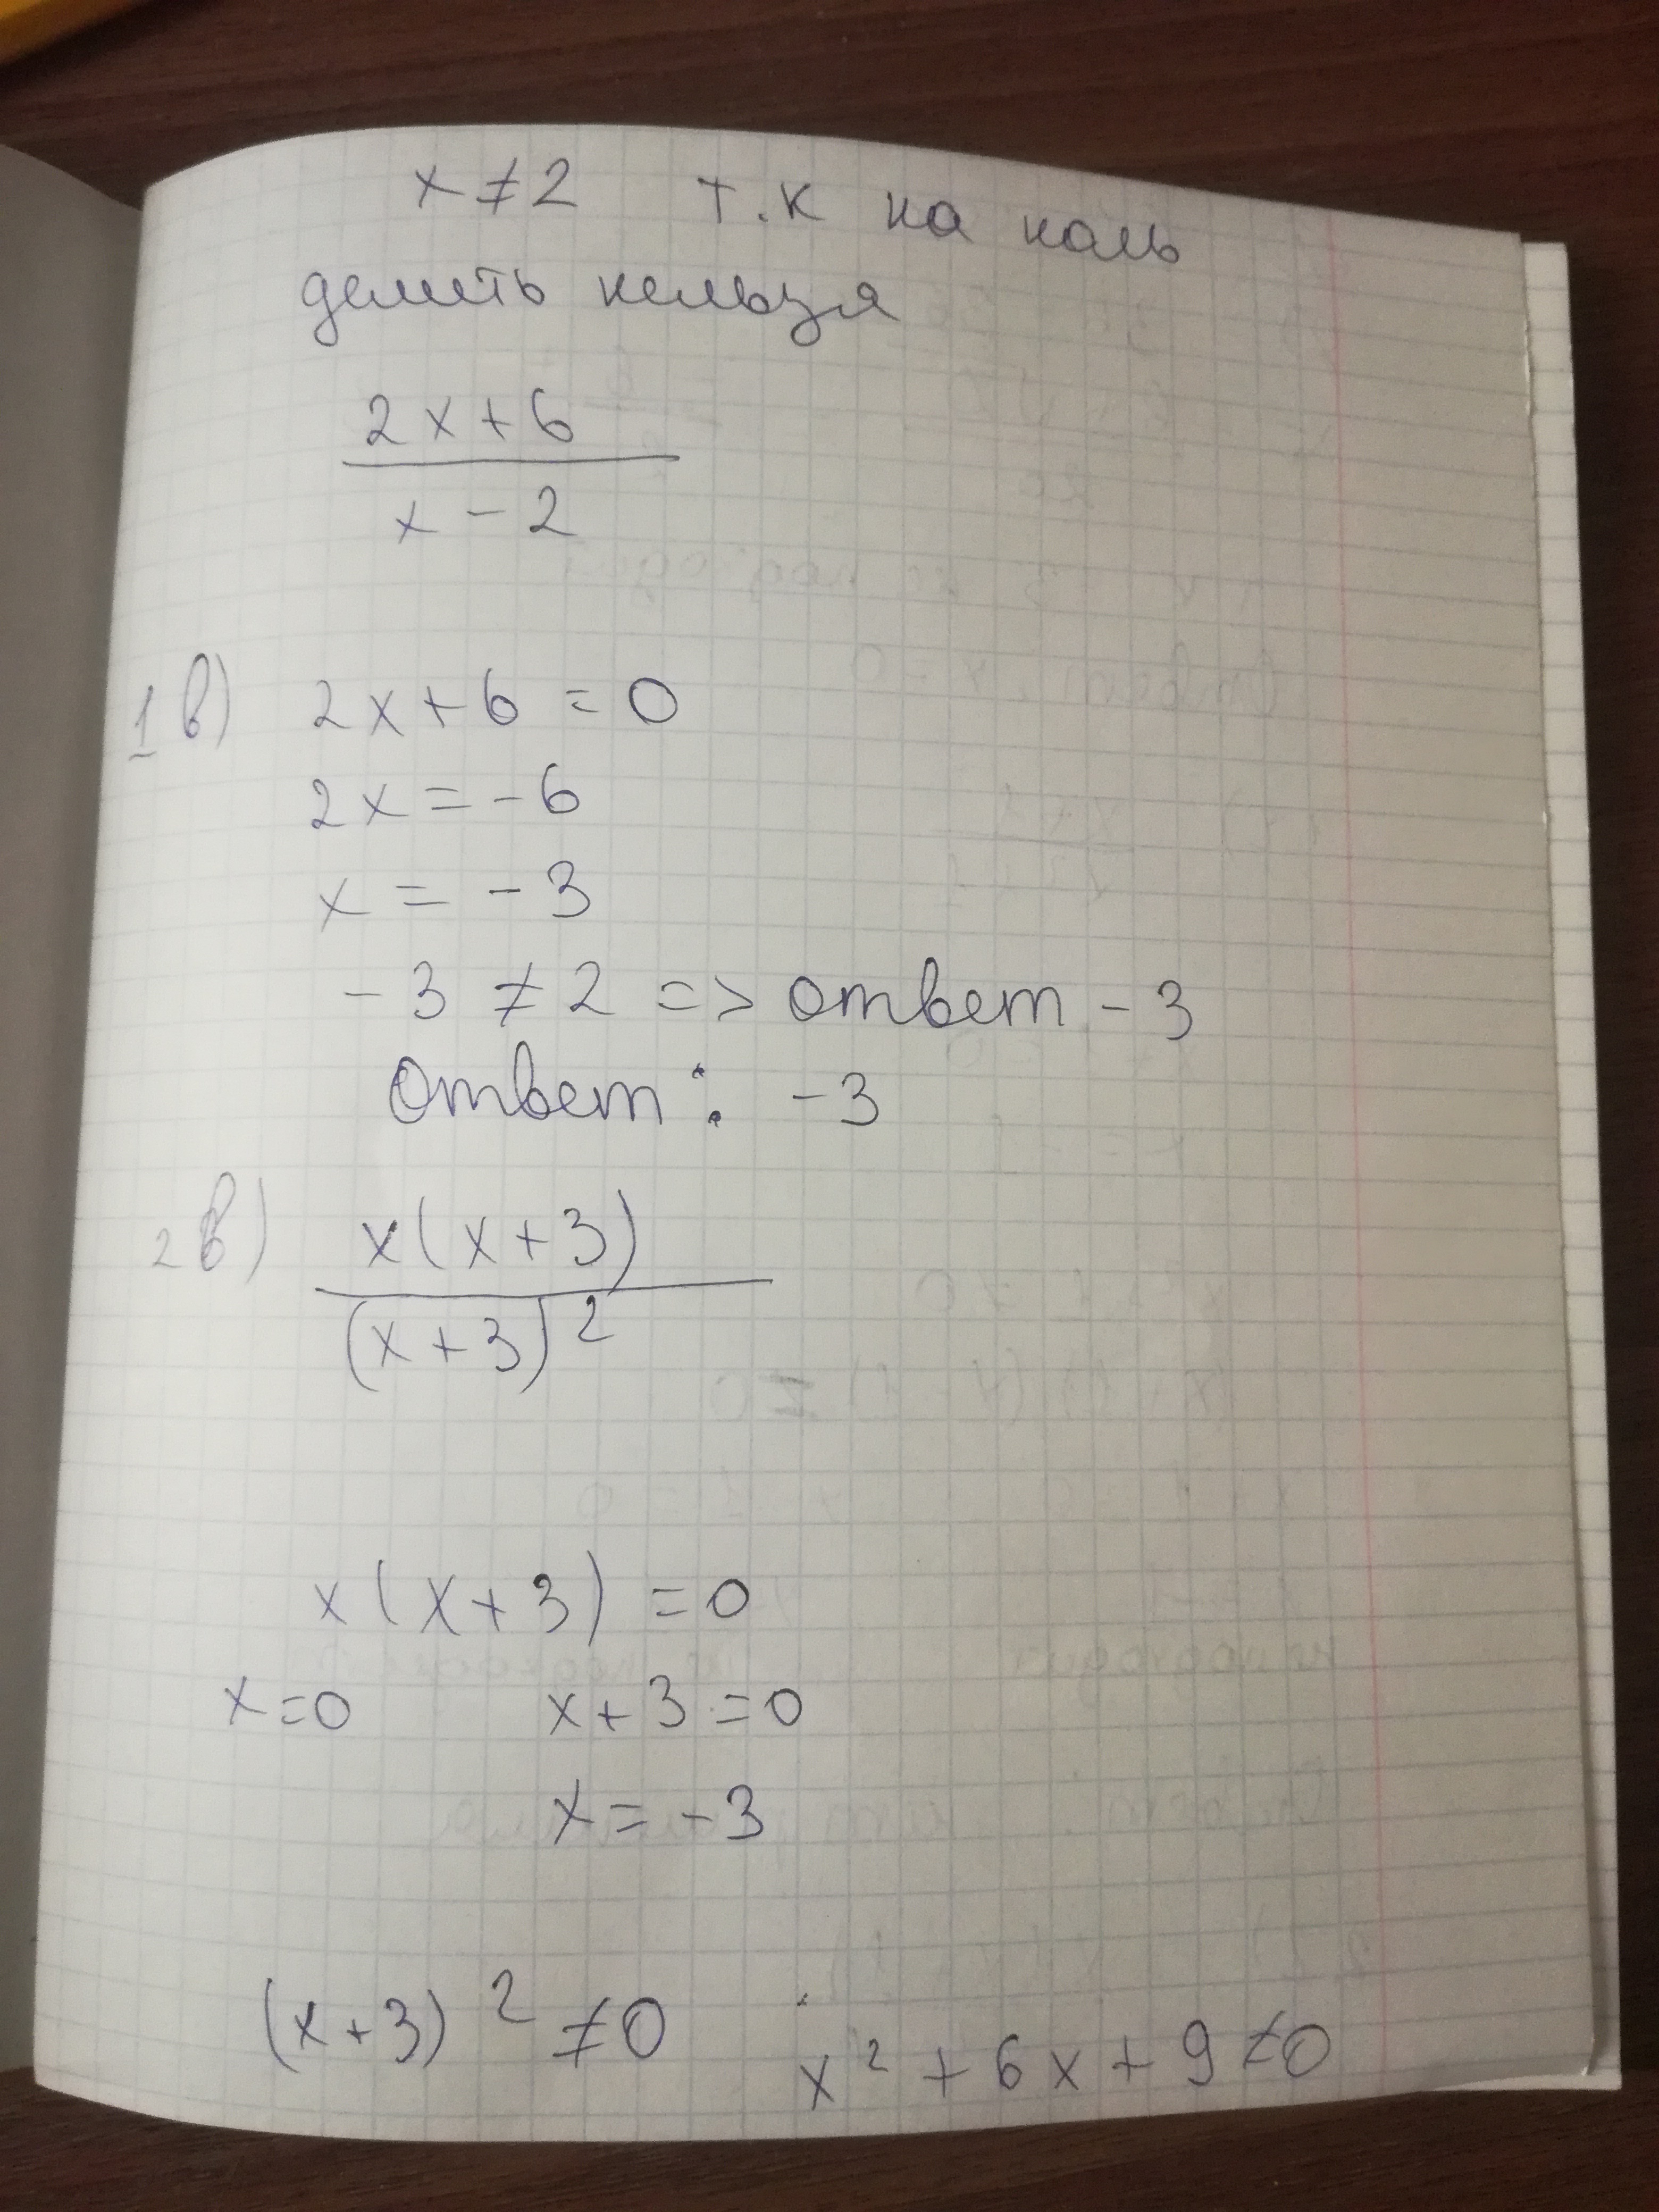 x ≠ 2 т.к наноль
делить нельзя
2x+6
x-2
1 в) 2x+6=0
2x=-6
x = -3
-3 ≠ 2 => ответ -3
Ответ: -3
2 в) x(x+3)
(x+3)²
x(x+3) =0
x=0 x+3=0
x=-3
(x+3)² ≠0 x²+6x+9≠0